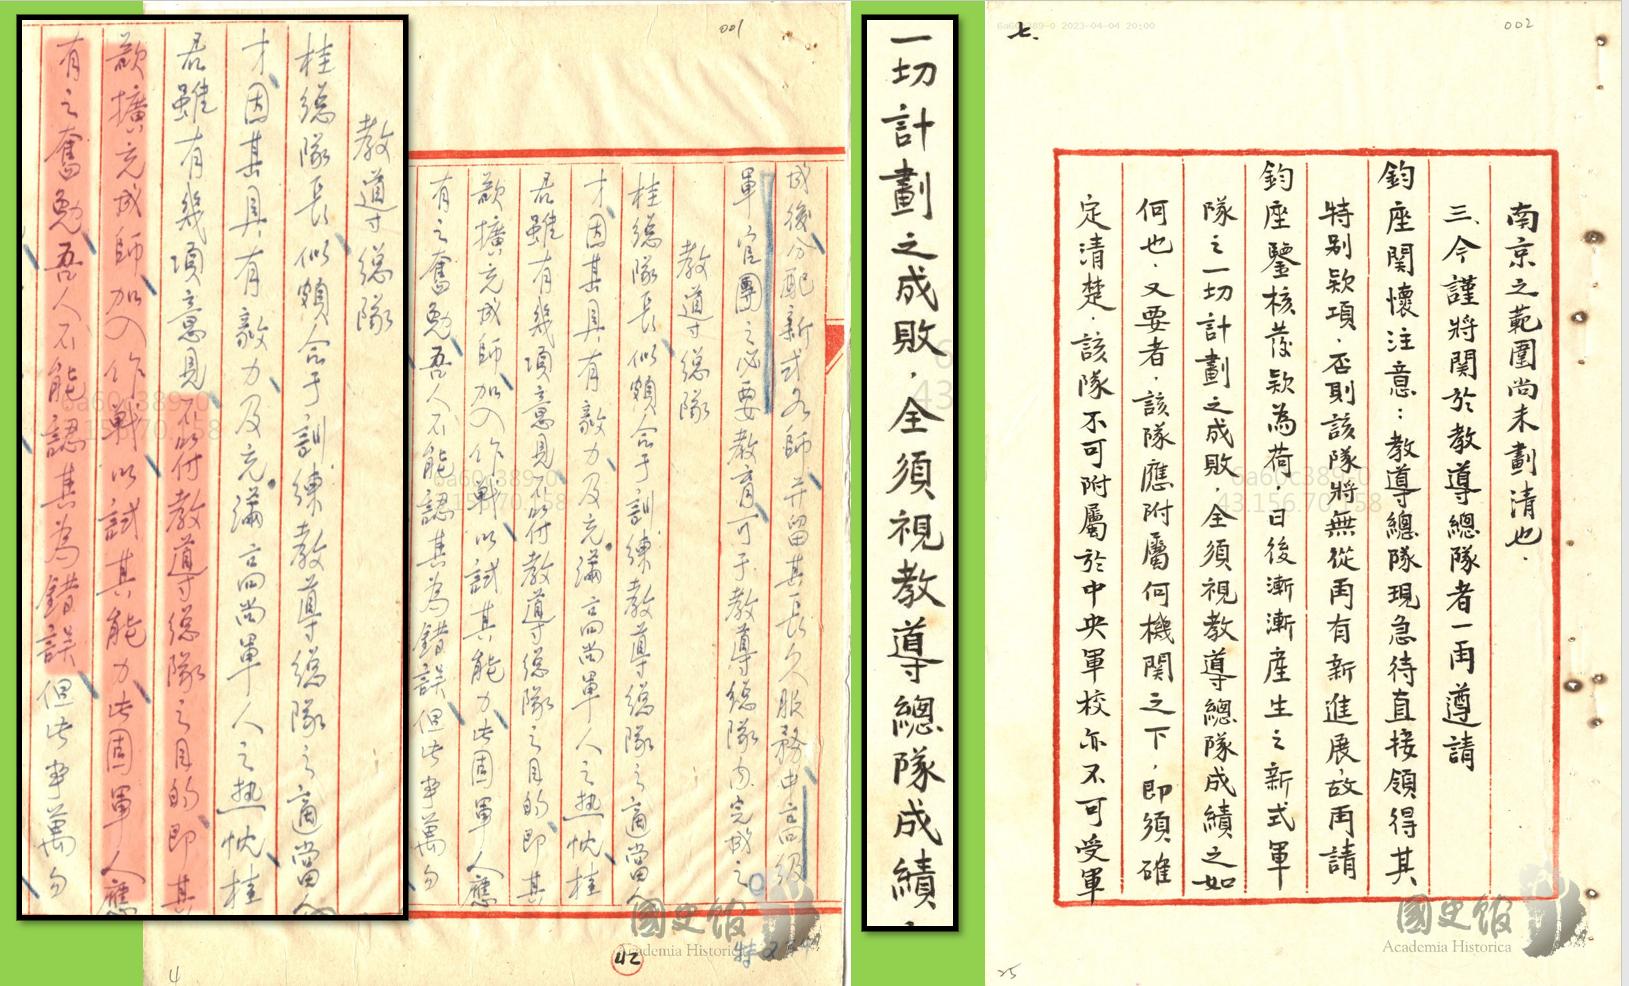 教導總隊
桂總隊長似頗合于訓練教導總隊之適當人
才因其具有毅力及充滿高尚軍人之熱忱桂
君雖有幾項意見不教導總隊之目的即其
欲擴充成師加入作戰以試其能力此固軍人應
有之奮勉吾人不能認其為錯誤但此事萬勿
001
成後分配新式各師並留其長久服務中高級
軍官團之必要教育可于教導總隊內完成之
教導總隊
桂總隊長似頗合于訓練教導總隊之適當人
才因其具有毅力及充滿高尚軍人之熱忱桂
君雖有幾項意見不教導總隊之目的即其
欲擴充成師加入作戰以試其能力此固軍人應
有之奮勉吾人不能認其為錯誤但此事萬勿
42
4
國史館
Academia Historica
一切計劃之成敗．全須視教導總隊成績．
6a60c389-0 2023-04-04 20:00
002
七、
南京之範圍尚未劃清也．
三、今謹將関於教導總隊者一再遵請
鈞座関懷注意：教導總隊現急待直接領得其
特别欵項．否則該隊將無從再有新進展．故再請
鈞座鑒核發欵為荷．日後漸漸産生之新式軍
隊之一切計劃之成敗．全須視教導總隊成績之如
何也．又要者．該隊應附屬何機関之下．即須確
定清楚．該隊不可附屬於中央軍校亦不可受軍
6a60c389-0
43.156.70.158
25
國史館
Academia Historica